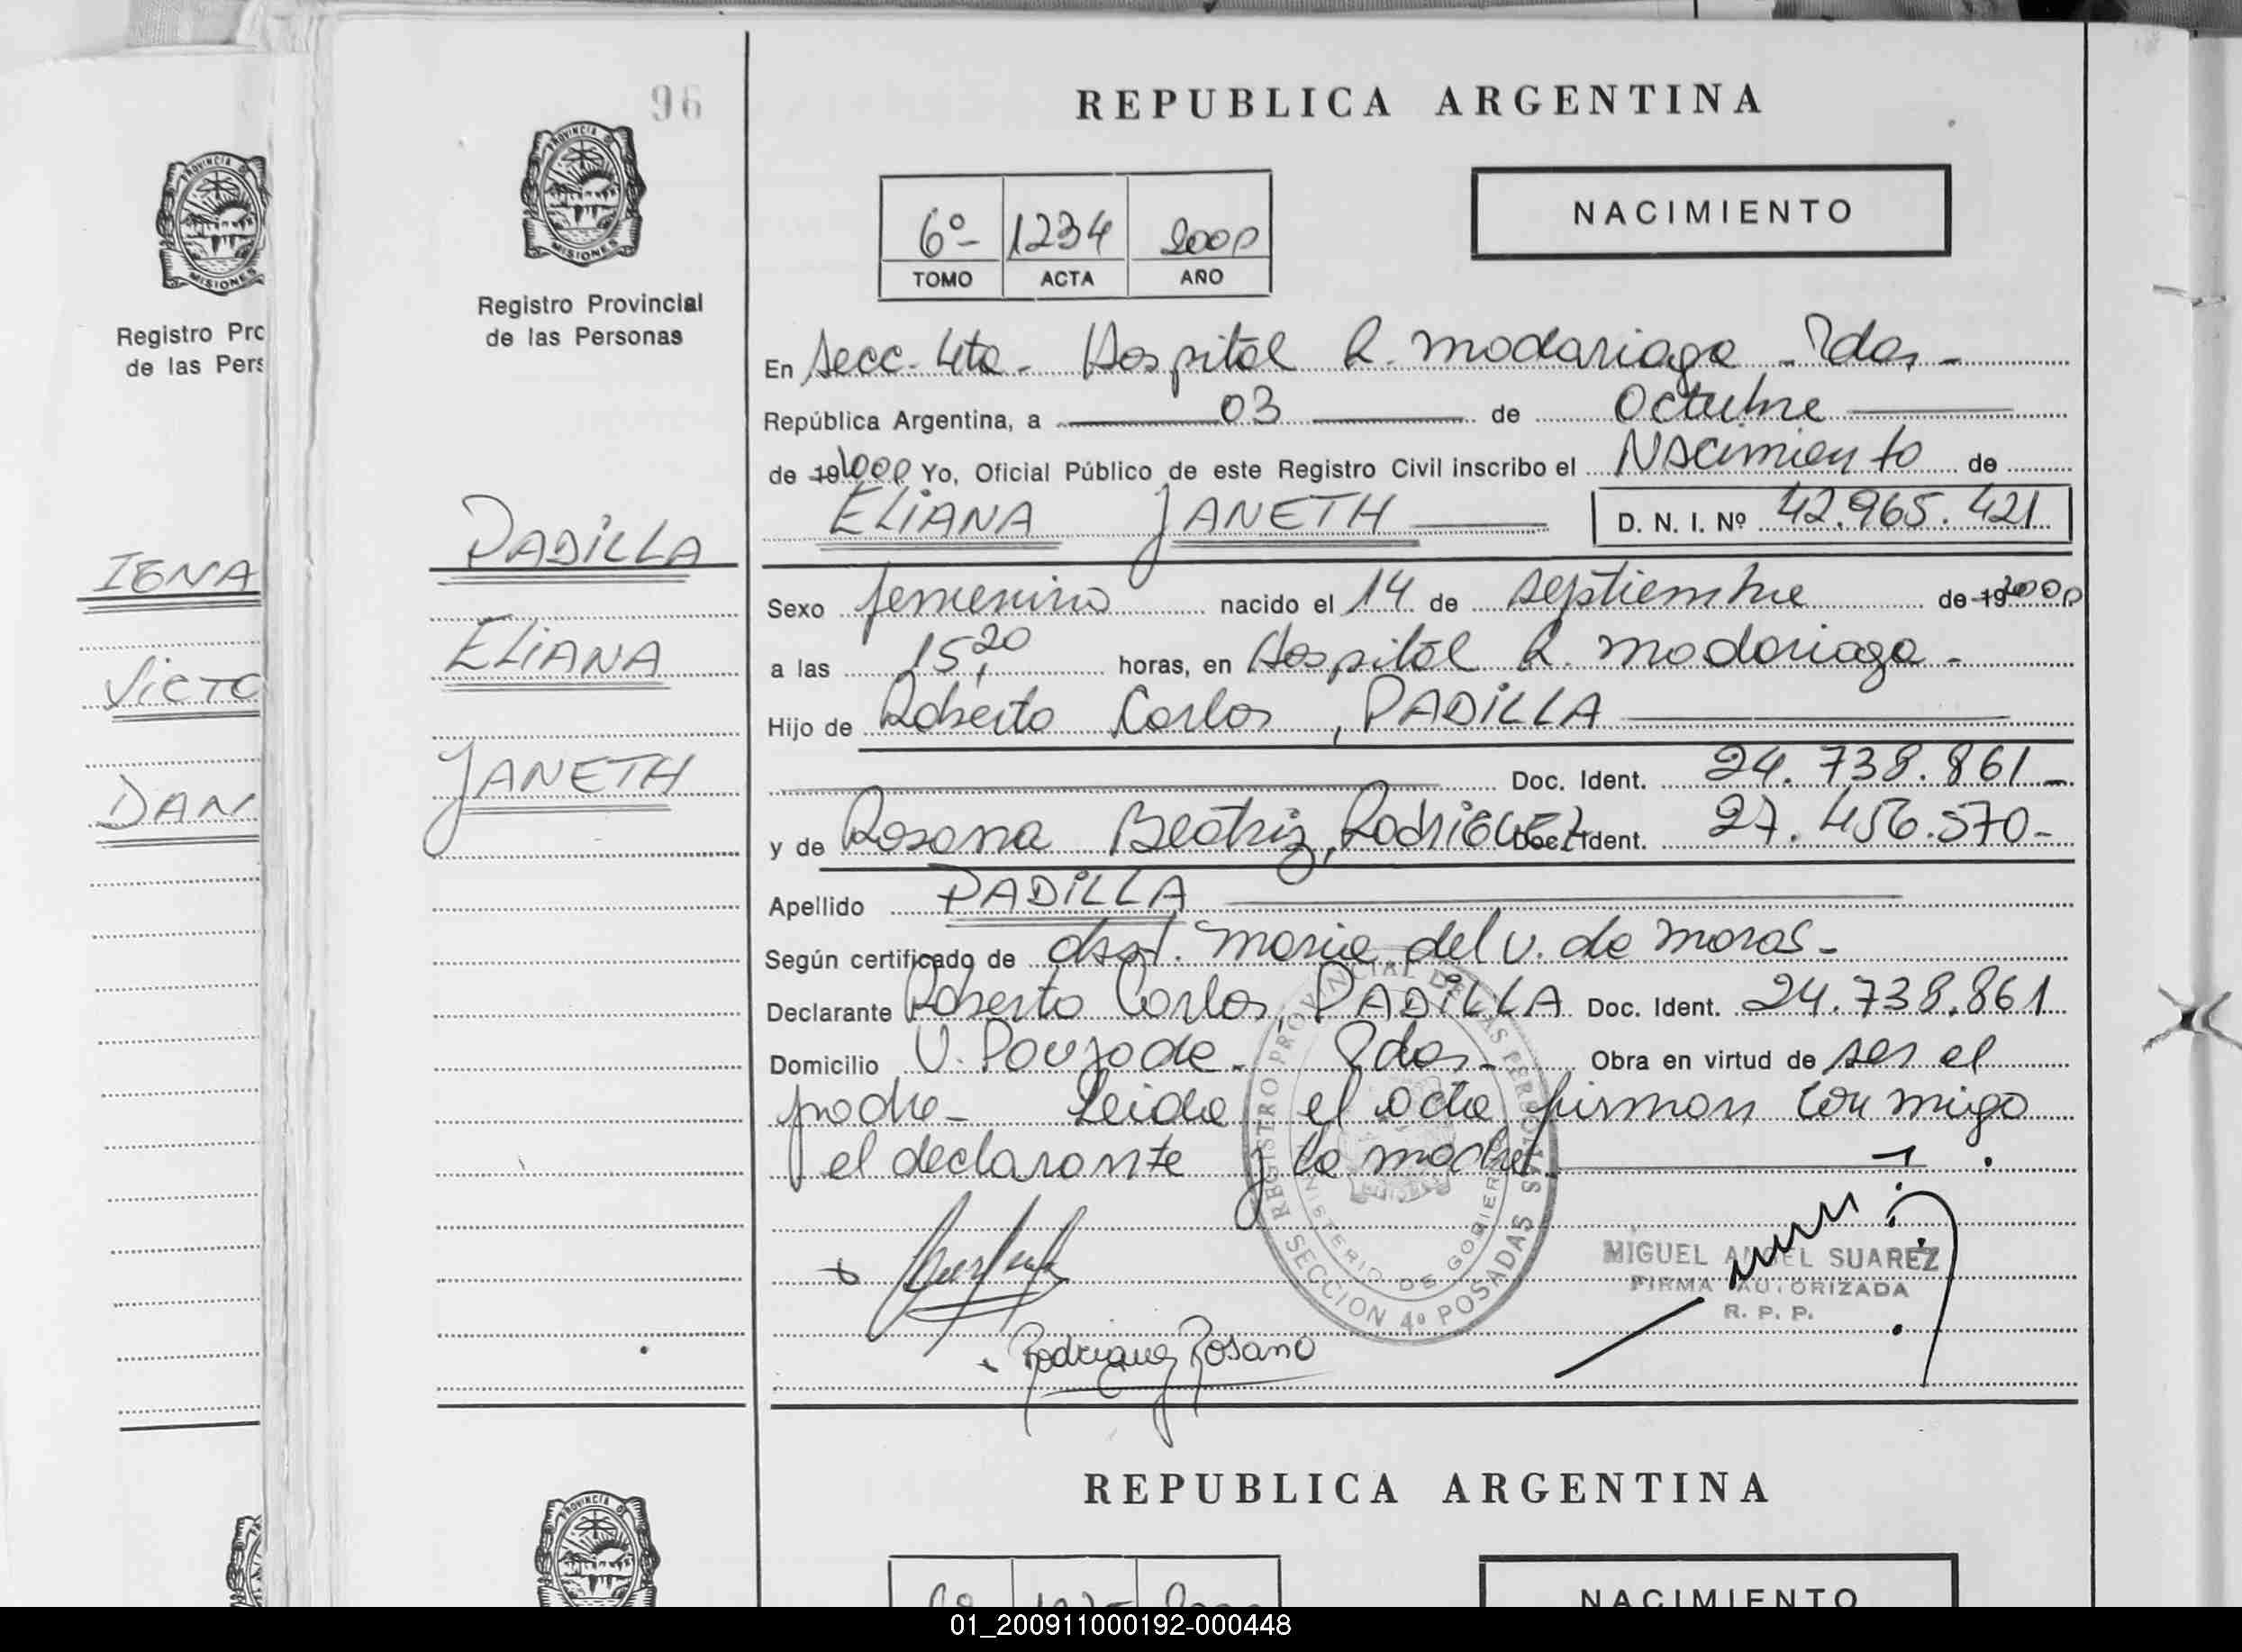 96
REPUBLICA ARGENTINA
PROVINCIA DE
MISIONES
Registro Provincial
de las Personas
6º- 1234 2000
TOMO ACTA AÑO
NACIMIENTO
En Secc. 4ta. Hospital R. Madariaga - Pdas,-
República Argentina, a 03 de Octubre
de 19 2000 Yo, Oficial Público de este Registro Civil inscribo el Nacimiento de
ELIANA JANETH D. N. I. Nº 42.965.421
Sexo femenino nacido el 14 de septiembre de 19 2000
a las 15,20 horas, en Hospital R. Madariaga -
Hijo de Roberto Carlos, PADILLA
Doc. Ident. 24.738.861-
y de Rosana Beatriz, RodriGUEZ Doc. Ident. 27.456.570-
Apellido PADILLA
Según certificado de obst. Maria del v. de moras-
Declarante Roberto Carlos, PADILLA Doc. Ident. 24.738.861
Domicilio V. Poujade. Pdas,- Obra en virtud de ser el
padre- Leida el acta firman conmigo
el declarante y la madre.
PADILLA
ELIANA
JANETH
REGISTRO PROVINCIAL DE LAS PERSONAS
MINISTERIO DE GOBIERNO
SECCION 4º POSADAS
MIGUEL ANGEL SUAREZ
FIRMA AUTORIZADA
R. P. P.
Rodriguez Rosana
PROVINCIA
MISIONES
Registro Pro
de las Pers
IGNA
VICTO
DAN
REPUBLICA ARGENTINA
PROVINCIA D
NACIMIENTO
01_200911000192-000448